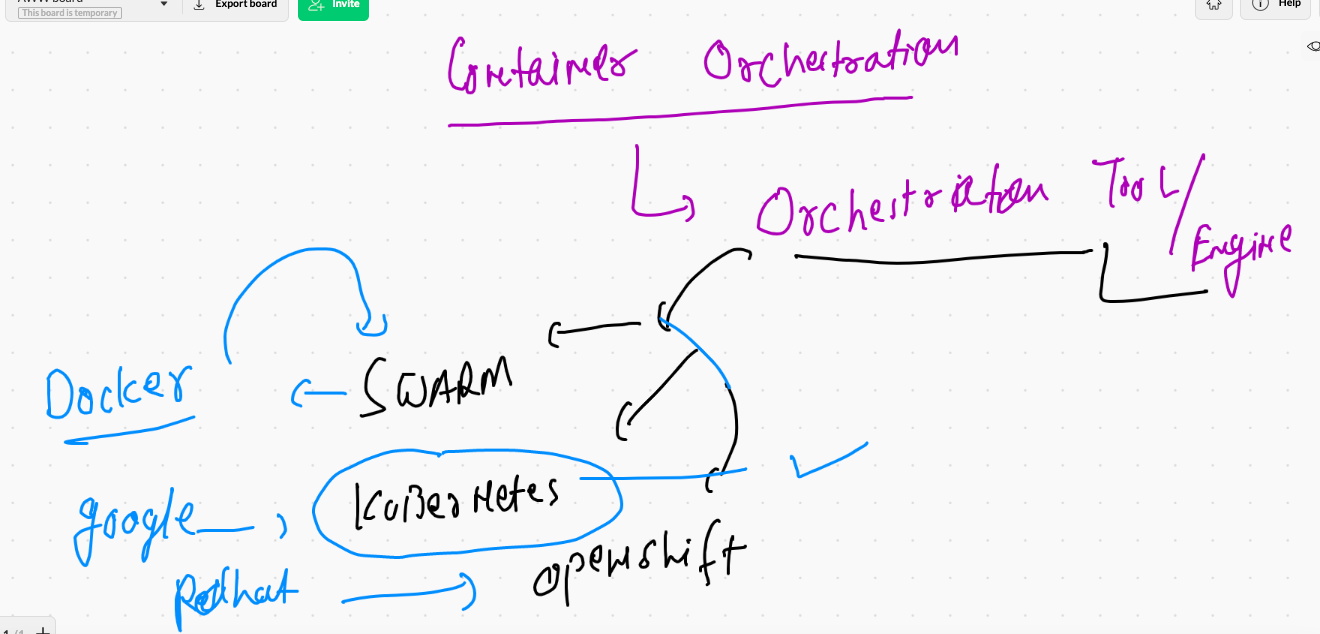 This board is temporary
Export board
Invite
Help
Container Orchestration
Orchestration Tool/
Engine
Docker
SWARM
google
KuBerNetes
Redhat
openshift
1 /1